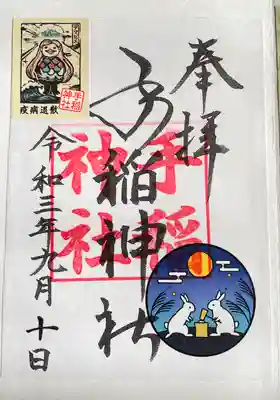 奉拝
手稲神社
手稲
神社
令和三年九月十日
手稲
神社
疫病退散